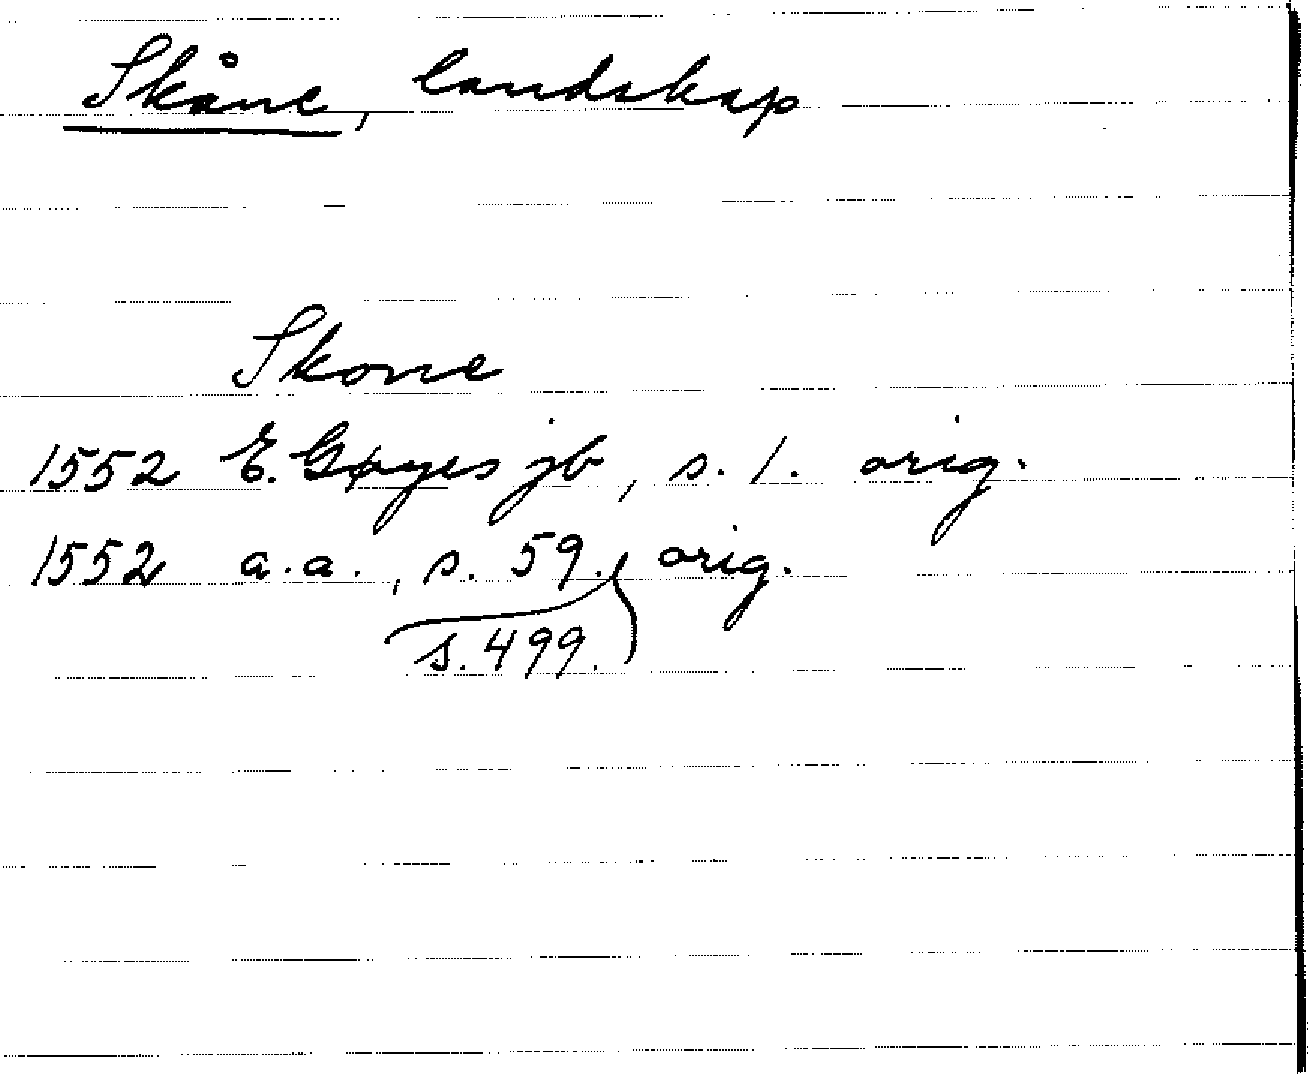 Skåne, landskap
Skone
1552 E. Gøyes jb, s. 1. orig.
1552 a.a., s. 59. orig.
s. 499.